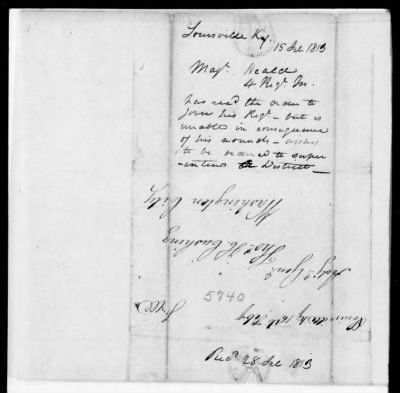 Louisville Ky.
15 Feb 1813
Majr. Heald
4 Regt. In.
has recd the order to
join his Regt. - but is
unable in consequence
of his wounds - wishes
to be ordered to super
-intend a District -
Washington City
Thos. H. Cushing
Adjt. Genl.
5740
Free
Louisville Ky 18th Feby
Recd. 28 Feb 1813